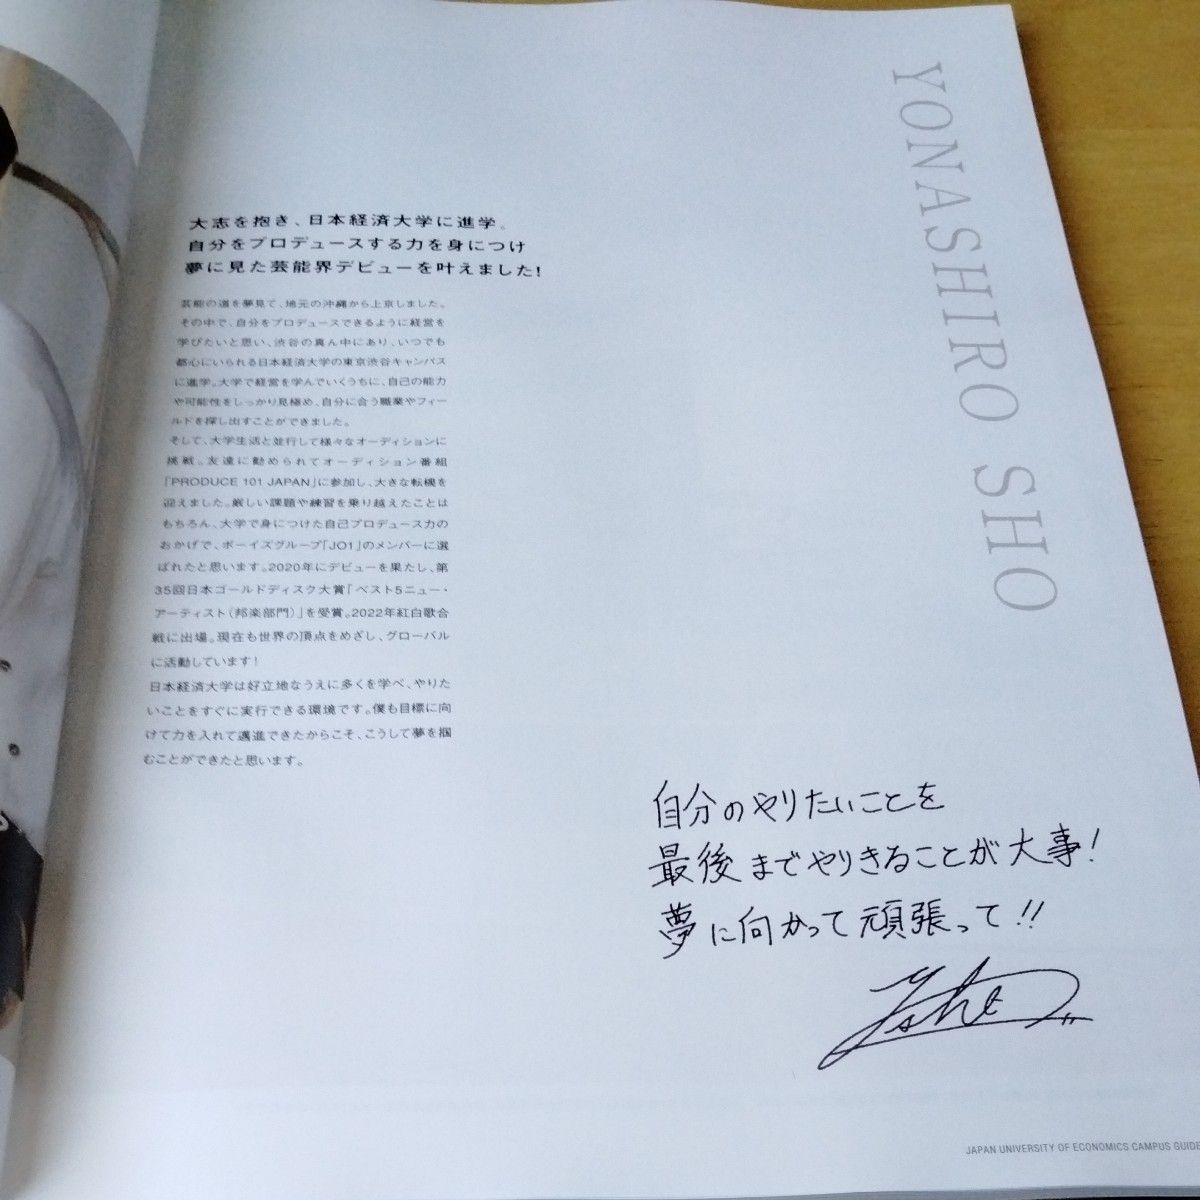 YONASHIRO SHO
大志を抱き、日本経済大学に進学。
自分をプロデュースする力を身につけ
夢に見た芸能界デビューを叶えました!
芸能の道を夢見て、地元の沖縄から上京しました。
その中で、自分をプロデュースできるように経営を
学びたいと思い、渋谷の真ん中にあり、いつでも
都心にいられる日本経済大学の東京渋谷キャンパス
に進学。大学で経営を学んでいくうちに、自己の能力
や可能性をしっかり見極め、自分に合う職業やフィー
ルドを探し出すことができました。
そして、大学生活と並行して様々なオーディションに
挑戦。友達に勧められてオーディション番組
「PRODUCE 101 JAPAN」に参加し、大きな転機を
迎えました。厳しい課題や練習を乗り越えたことは
もちろん、大学で身につけた自己プロデュース力の
おかげで、ボーイズグループ「JO1」のメンバーに選
ばれたと思います。2020年にデビューを果たし、第
35回日本ゴールドディスク大賞「ベスト5ニュー・
アーティスト(邦楽部門)」を受賞。2022年紅白歌合
戦に出場。現在も世界の頂点をめざし、グローバル
に活動しています!
日本経済大学は好立地なうえに多くを学べ、やりた
いことをすぐに実行できる環境です。僕も目標に向
けて力を入れて邁進できたからこそ、こうして夢を掴
むことができたと思います。
自分のやりたいことを
最後までやりきることが大事!
夢に向かって頑張って!!
JAPAN UNIVERSITY OF ECONOMICS CAMPUS GUIDE